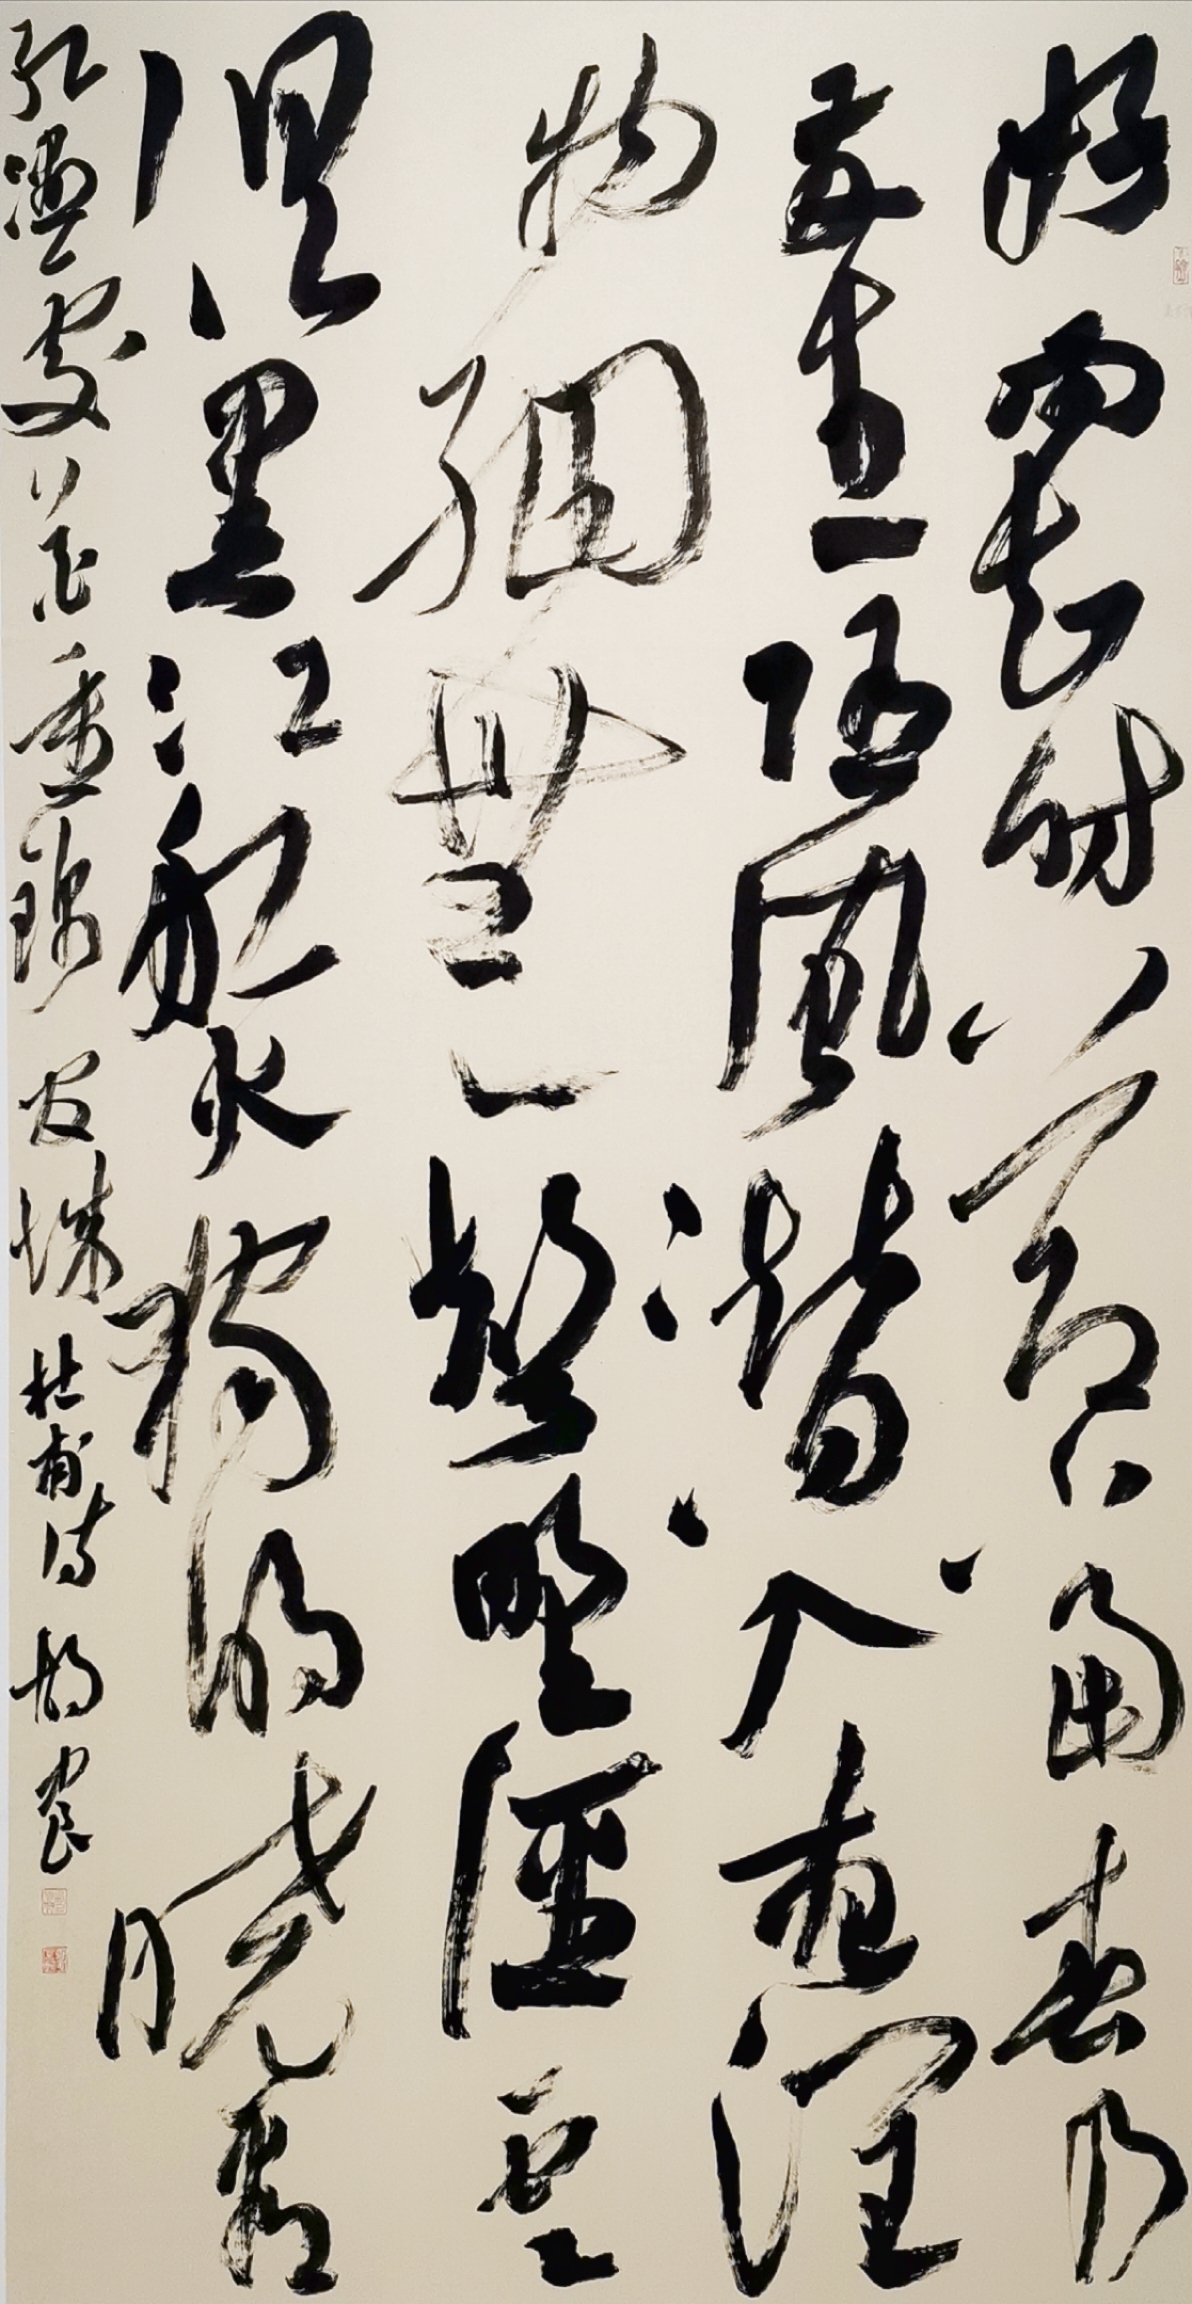 好雨知時節當春乃
發生隨風潛入夜潤
物細無聲野徑雲
俱黑江船火獨明曉看
紅濕處花重錦官城杜甫詩